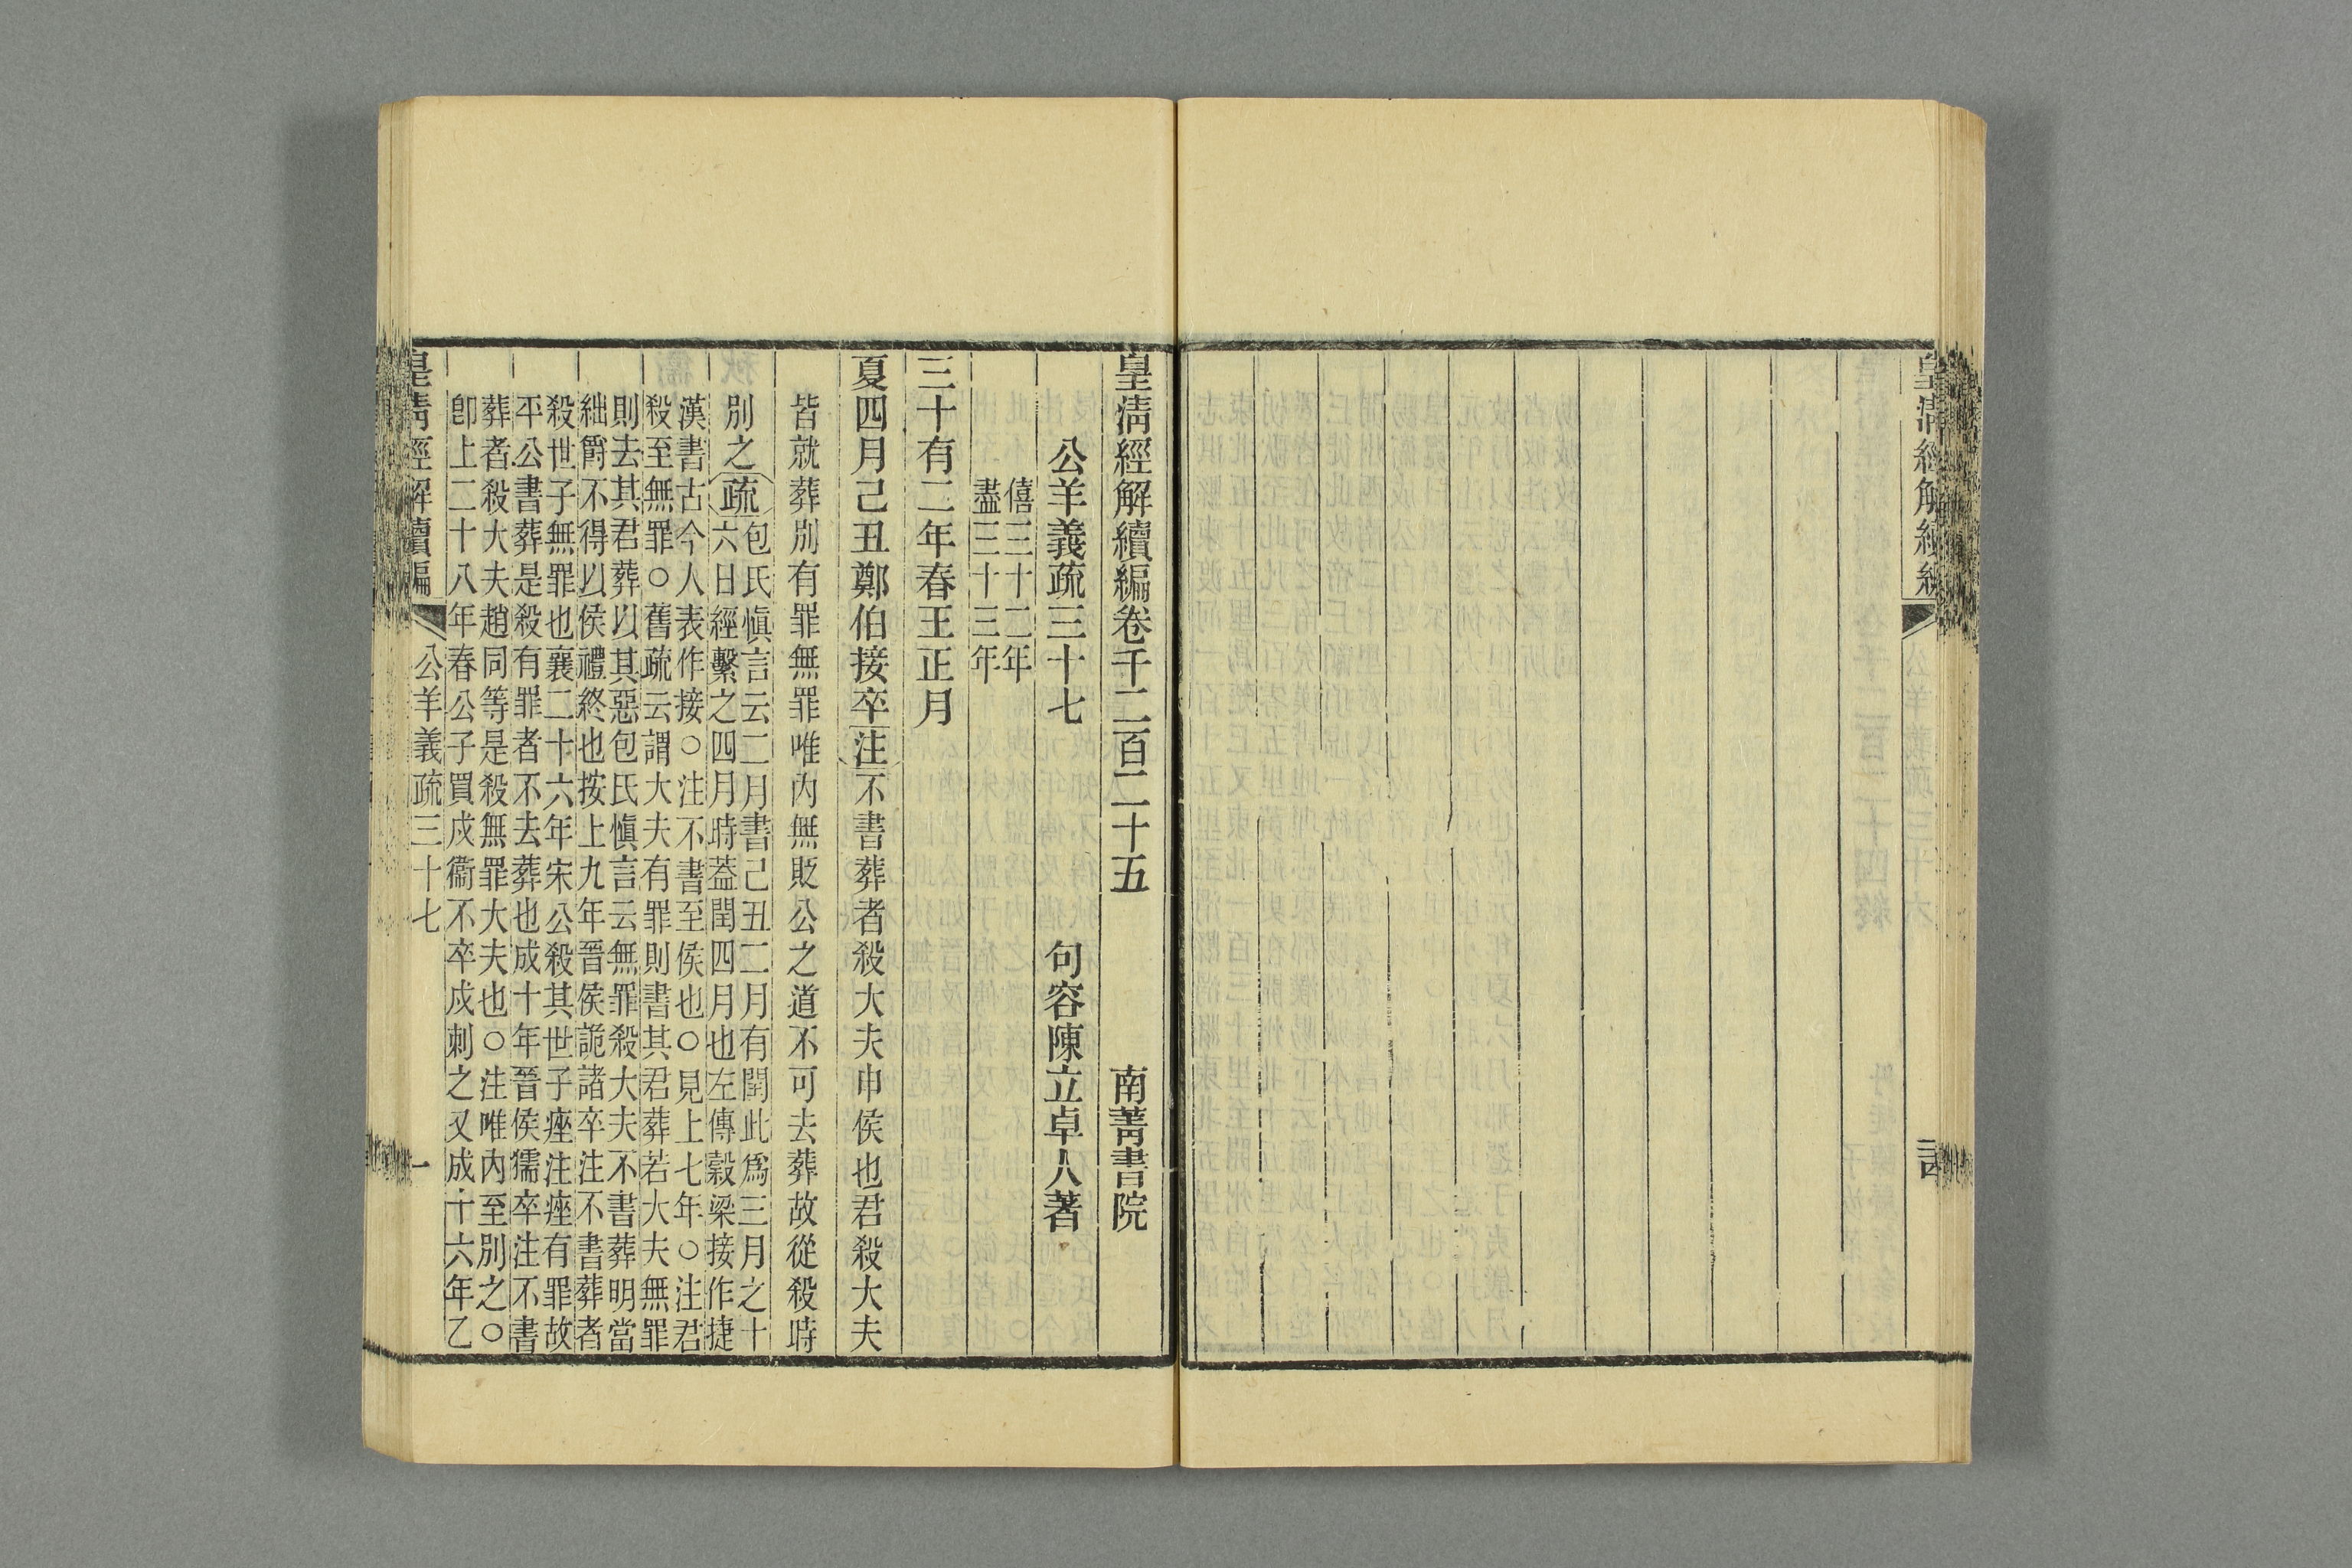 皇淸經解續編卷千二百二十五
南菁書院
公羊義疏三十七
句容陳立卓人著
僖三十二年
盡三十三年
三十有二年春王正月
夏四月己丑鄭伯接卒注不書葬者殺大夫申侯也君殺大夫
皆就葬別有罪無罪唯內無貶公之道不可去葬故從殺時
別之疏
包氏愼言云二月書己丑二月有閏此爲三月之十
六日經繫之四月時葢閏四月也左傳穀梁接作捷
漢書古今人表作接○注不書至侯也○見上七年○注君
殺至無罪○舊疏云謂大夫有罪則書其君葬若大夫無罪
則去其君葬以其惡包氏愼言云無罪殺大夫不書葬明當
絀爵不得以侯禮終也按上九年晉侯詭諸卒注不書葬者
殺世子無罪也襄二十六年宋公殺其世子痤注痤有罪故
平公書葬是殺有罪者不去葬也成十年晉侯獳卒注不書
葬者殺大夫趙同等是殺無罪大夫也○注唯內至別之○
卽上二十八年春公子買戍衞不卒戍刺之又成十六年乙
皇淸經解續編
公羊義疏三十七
一